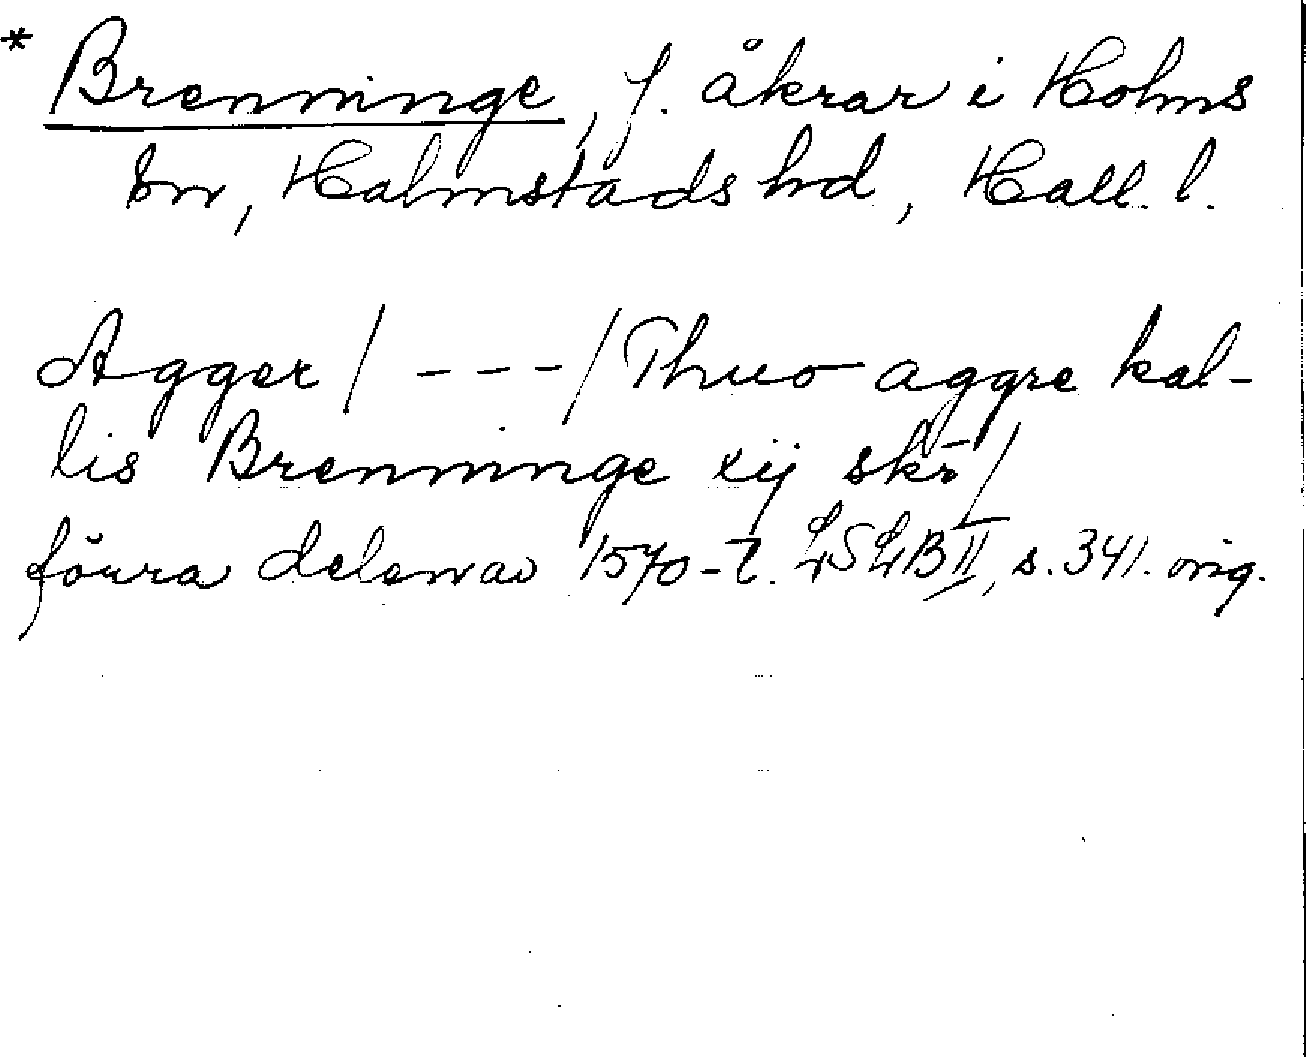 * Brenninge, f. åkrar i Holms
sn, Halmstads hd, Hall. l.
Agger / - - - / Thuo aggre kal-
lis Brenninge xij skr /
förra delen av 1570-t. LSLB II, s. 341. orig.